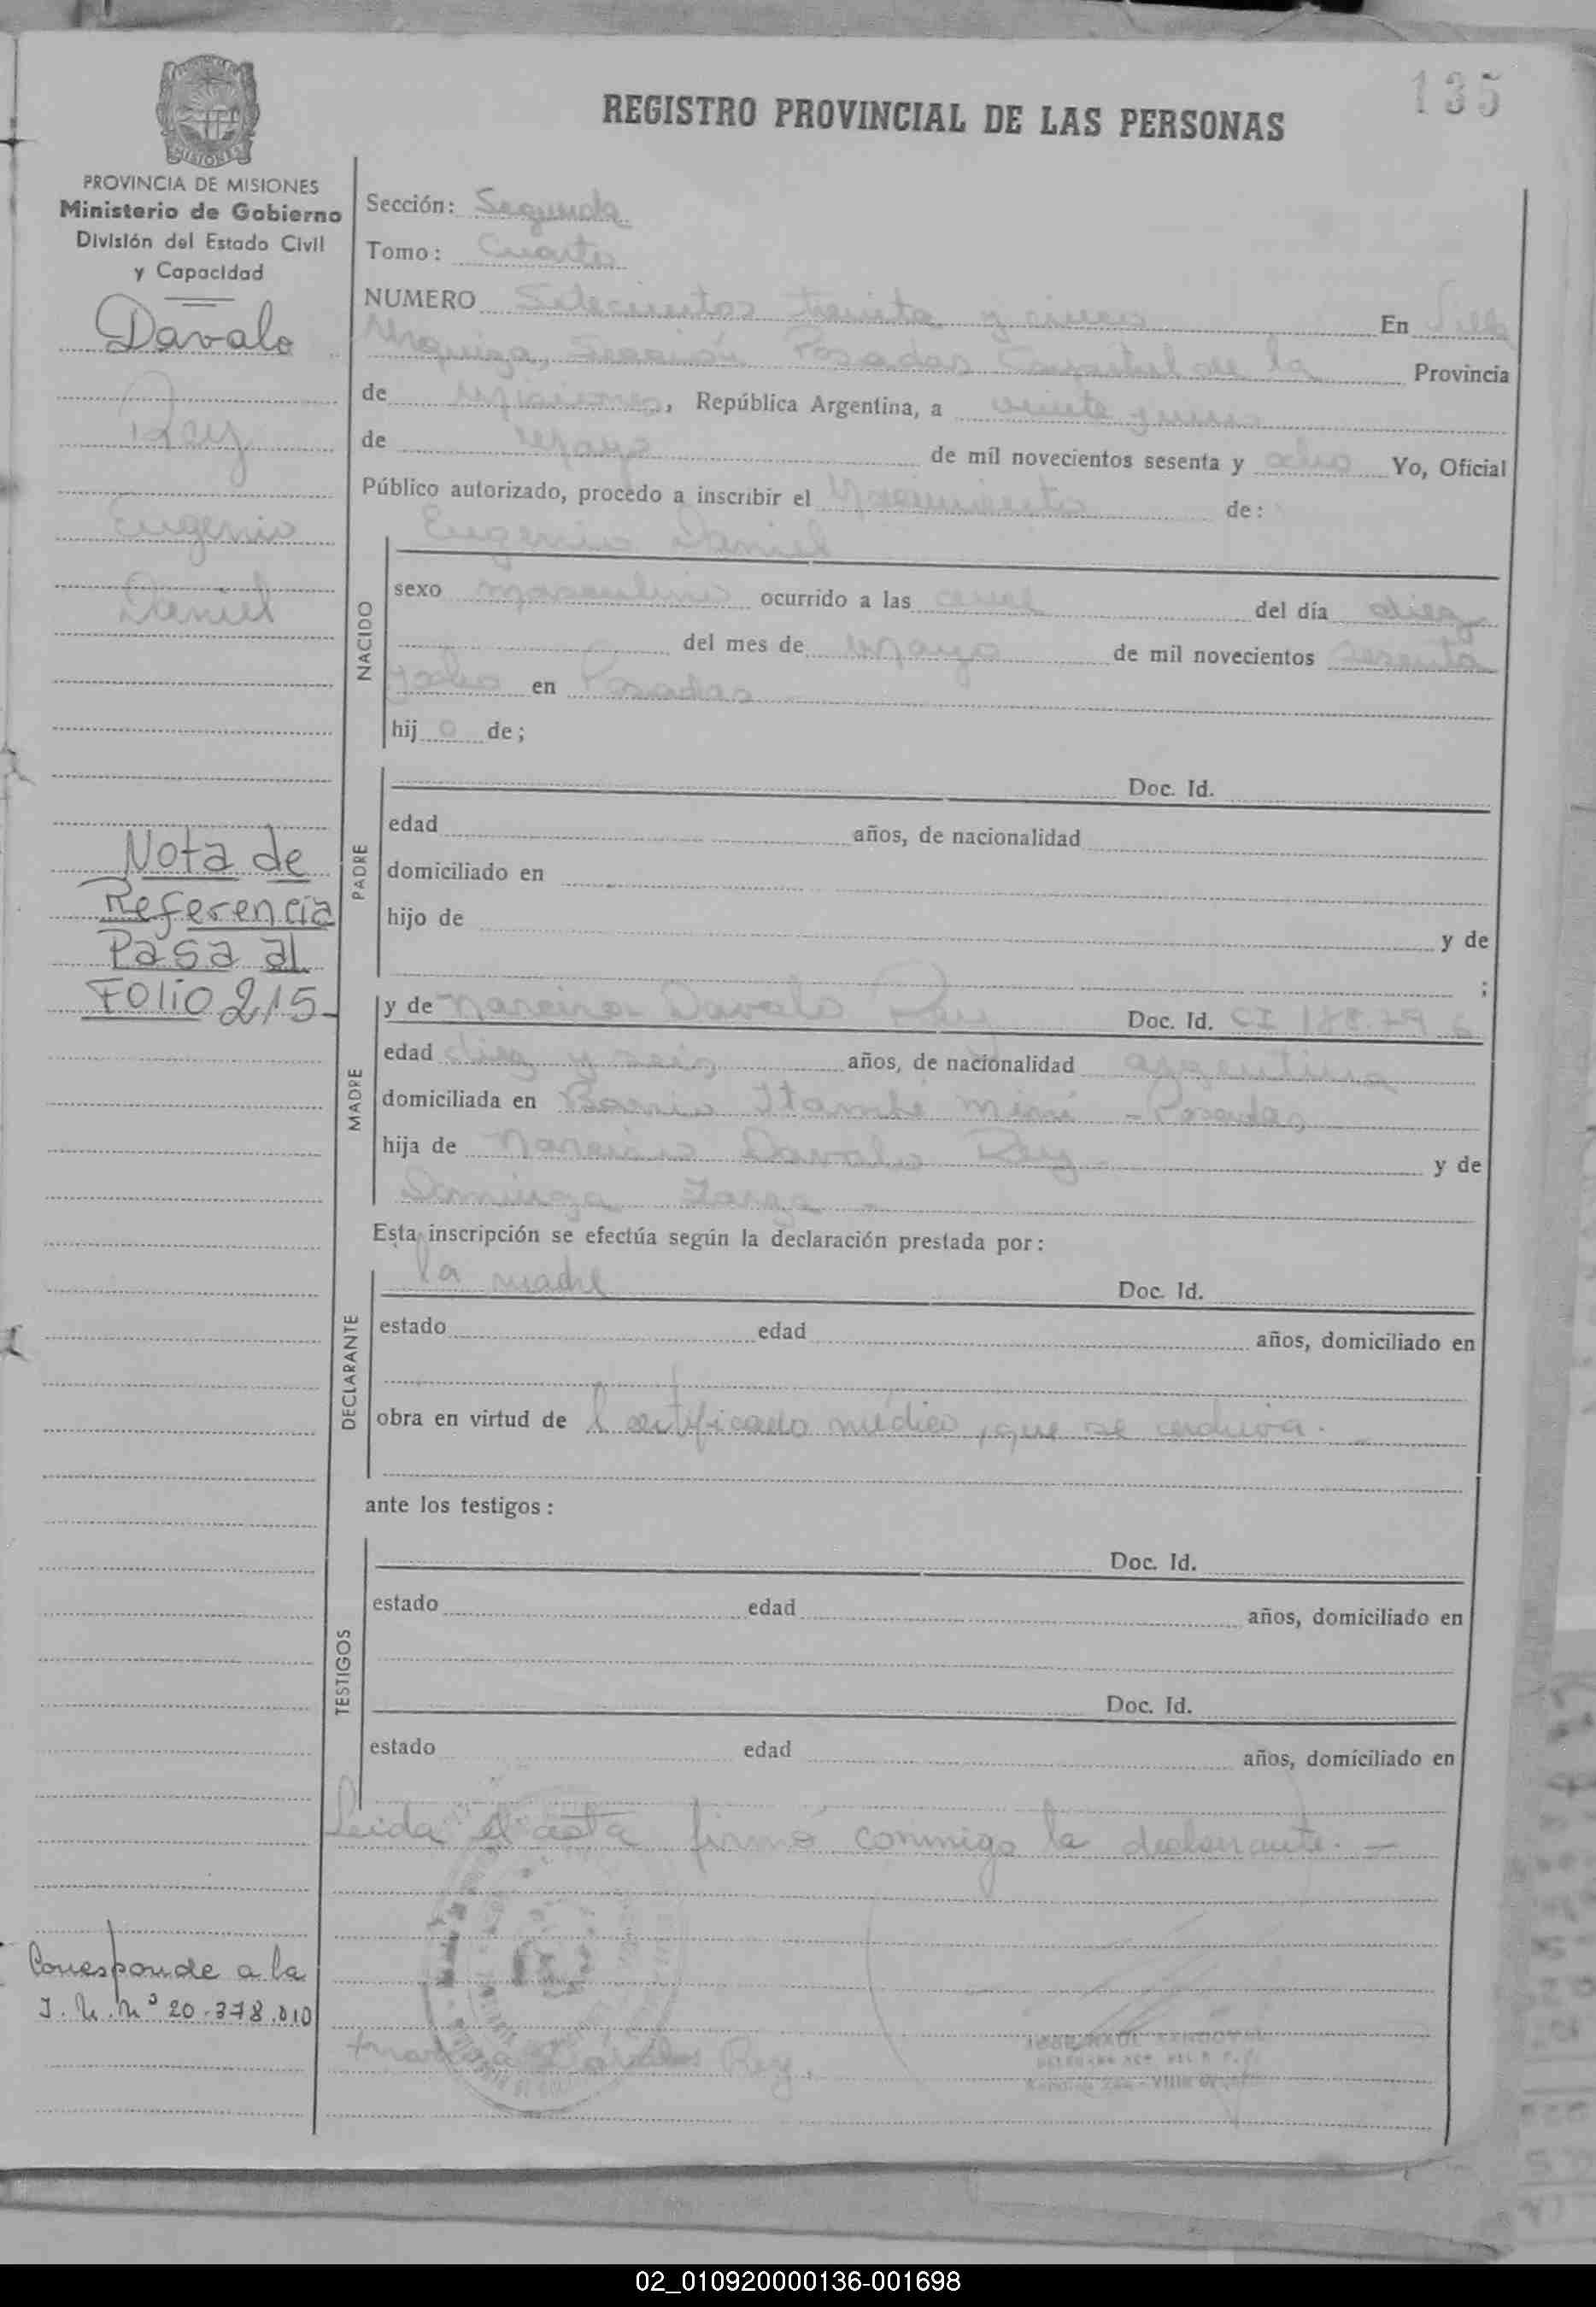 135
REGISTRO PROVINCIAL DE LAS PERSONAS
MISIONES
PROVINCIA DE MISIONES
Ministerio de Gobierno
División del Estado Civil
y Capacidad
Davalo
Rey
Eugenio
Daniel
Nota de
Referencia
Pasa al
Folio 215-
Corresponde a la
20.378.010
Sección: Segunda
Tomo: Cuarto
NUMERO Setecientos treinta y cinco En Villa
Urquiza, Sección Posadas Capital de la Provincia
de Misiones, República Argentina, a veinte y uno
de mayo de mil novecientos sesenta y ocho Yo, Oficial
Público autorizado, procedo a inscribir el Nacimiento de:
NACIDO
Eugenio Daniel
sexo masculino ocurrido a las del día diez
del mes de mayo de mil novecientos sesenta
y ocho en Posadas
hijo de;
PADRE
Doc. Id.
edad años, de nacionalidad
domiciliado en
hijo de y de
;
MADRE
y de Davalo Rey Doc. Id. CI
edad diez y seis años, de nacionalidad argentina
domiciliada en Barrio Itambé Miní - Posadas
hija de Davalo Rey y de
Dominga
Esta inscripción se efectúa según la declaración prestada por:
DECLARANTE
la madre Doc. Id.
estado edad años, domiciliado en
obra en virtud de certificado médico, que se archiva. -
ante los testigos:
TESTIGOS
Doc. Id.
estado edad años, domiciliado en
Doc. Id.
estado edad años, domiciliado en
Leida el acta firmó conmigo la declarante. -
Rey
02_010920000136-001698